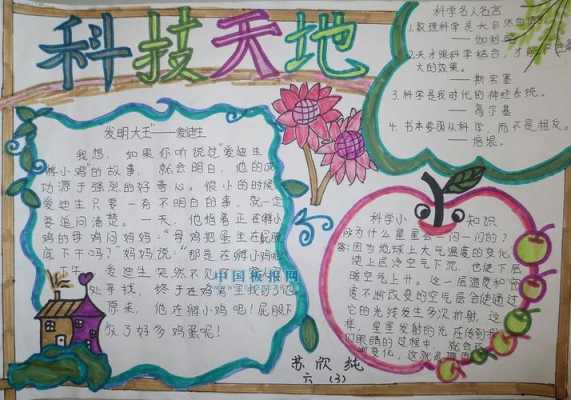 科技天地
发明大王"——爱迪生
我想,如果你听说过"爱迪生
孵小鸡"的故事,就会明白,他的成
功源于强烈的好奇心。很小的时候
爱迪生只要一有不明白的事,就一定
要追问清楚。一天,他指着正在孵小
鸡的母鸡问妈妈:"母鸡把蛋坐在屁股
底下干吗?"妈妈说:"那是在孵小鸡呢
爱迪生突然不见
处寻找,终于在鸡窝里找到了他
原来,他在孵小鸡呢!屁股下
放了好多鸡蛋呢!
中国板报网
科学名人名言
1.数理科学是大自然
——伽利略
2.天才跟科学结合,才
大的效果。
——斯宾塞
3.科学是我时代的神经系统。
——高尔基
4.书本要跟从科学,而不是相反。
——培根。
科学小知识
问为什么星星会一闪一闪的?
答:因为地球上大气温度的变化,
使上层冷空气下沉,也使下层
暖空气上升。这一层温度和密
度不断改变的空气层会使通过
它的光线发生多次折射,这
样,星星发射的光在传到我
们眼睛的过程中,就会
变化,这就
苏欣纯
六(3)